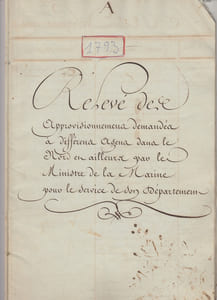 A
1793
Relevé des
Approvisionnemens demandés
à différens Agens dans le
Nord et ailleurs par le
Ministre de la Marine
pour le service de son Département